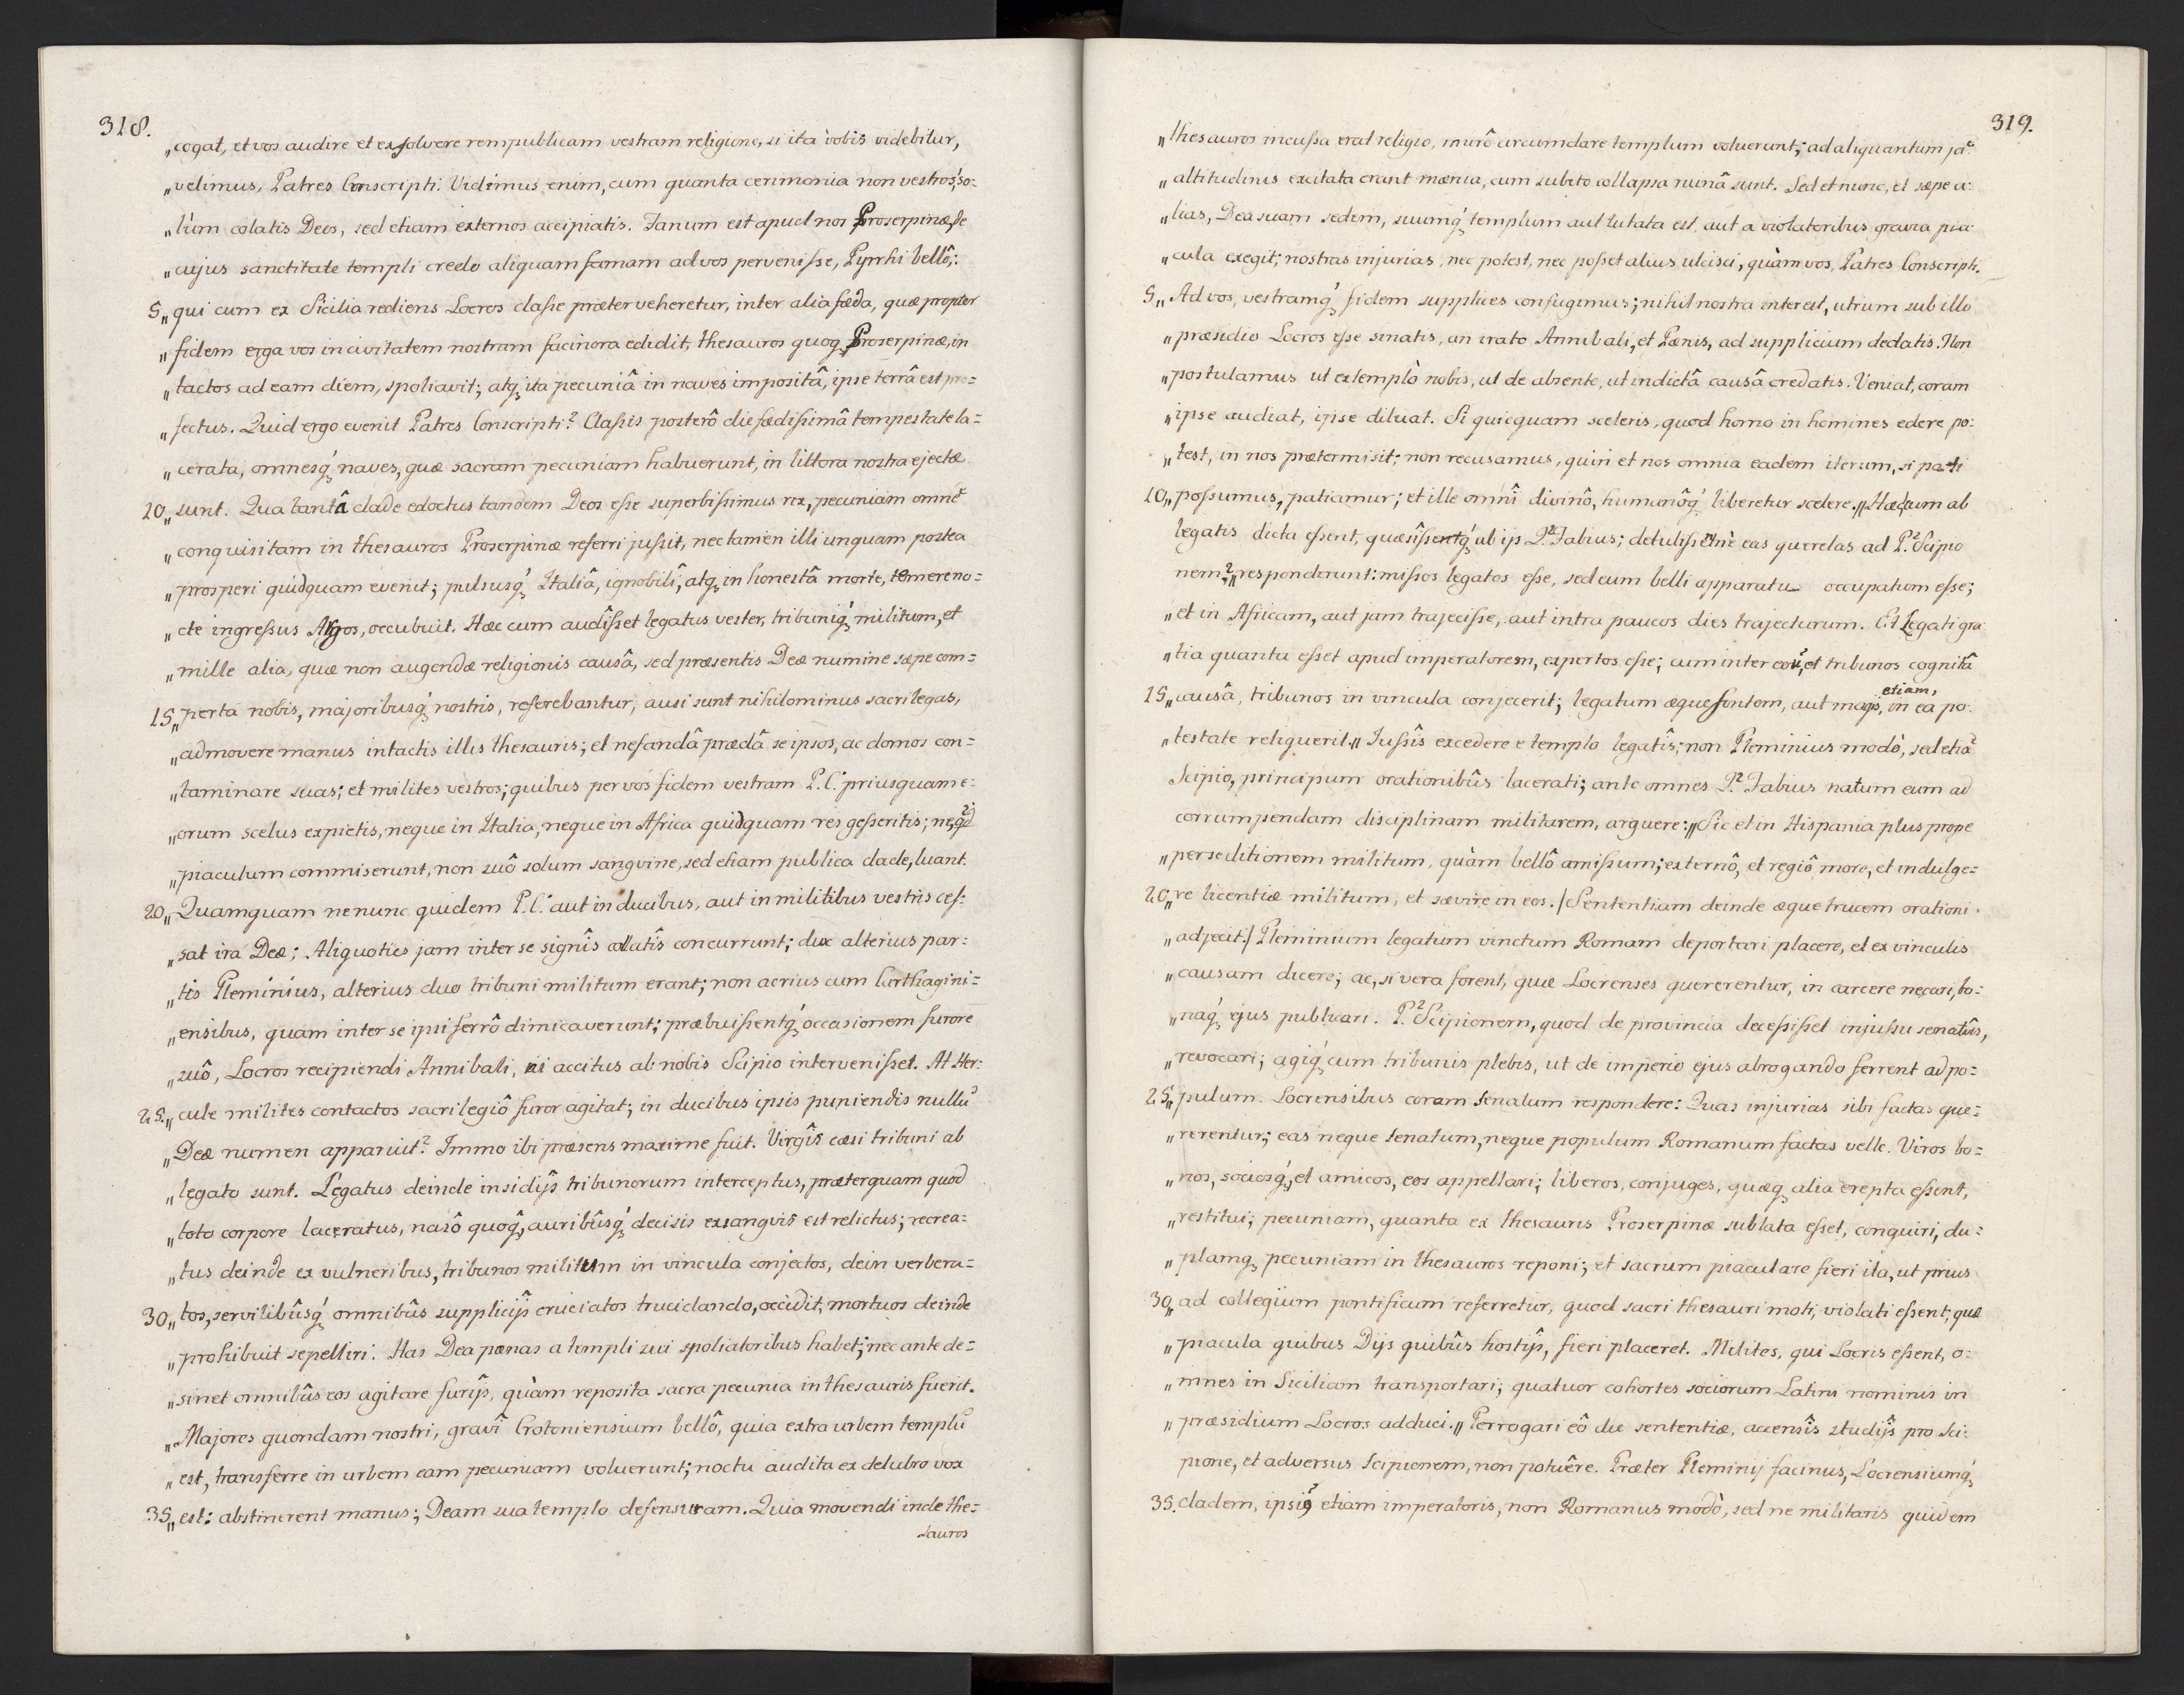 318.
„cogat, et vos audire et exsolvere rempublicam vestram religione, si ita vobis videbitur,
„velimus, Patres Conscripti. Vidimus enim, cum quanta cerimonia non vestros so:
„lùm colatis Deos, sed etiam externos accipiatis. Fanum est apud nos Proserpinæ, de
„cujus sanctitate templi credo aliquam famam ad vos pervenisse, Pyrrhi bellô;
5„ qui cum ex Sicilia rediens Locros classe præterveheretur, inter alia fæda, quæ propter
„fidem erga vos in civitatem nostram facinora edidit, thesauros quoq, Proserpinæ, in
„tactos ad eam diem, spoliavit; atq, ita pecuniâ in naves impositâ, ipse terrâ est pro=
„fectus. Quid ergo evenit Patres Conscripti? Classis posterô die fædissimâ tempestate la=
„cerata, omnesq́, naves, quæ sacram pecuniam habuerunt, in littora nostra ejectæ
10„ sunt. Qua tantâ clade edoctus tandem Deos esse superbissimus rex, pecuniam omnẽ
„conquisitam in thesauros Proserpinæ referri jussit, nec tamen illi unquam postea
„prosperi quidquam evenit; pulsusq́, Italiâ, ignobilî, atq, in honestâ morte, temere no=
„cte ingressus Argos, occubuit. Hæc cum audîsset legatus vester, tribuniq́, militum, et
„mille alia, quæ non augendæ religionis causâ, sed præsentis Deæ numine sæpe com=
15„ perta nobis, majoribusq́, nostris, referebantur, ausi sunt nihilominus sacrilegas,
„admovere manus intactis illis thesauris; et nefandâ prædâ se ipsos, ac domos con=
„taminare suas; et milites vestros; quibus per vos fidem vestram P.C. priusquam e=
„orum scelus expietis, neque in Italia, neque in Africa quidquam res gesseritis; ne, qd
„piaculum commiserunt, non suô solum sangvine, sed etiam publica clade, luant.
20„ Quamquam ne nunc quidem P.C. aut in ducibus, aut in militibus vestris ces:
„sat ira Deæ; Aliquoties jam inter se signîs collatîs concurrunt; dux alterius par:
„tis Pleminius, alterius duo tribuni militum erant; non acrius cum Carthagini=
„ensibus, quam inter se ipsi ferrô dimicaverunt; præbuissentq́, occasionem furore
„suô, Locros recipiendi Annibali, ni accitus ab nobis Scipio intervenisset. At Her:
25„ cule milites contactos sacrilegiô furor agitat; in ducibus ipsis puniendis nullũ
„Deæ numen apparuit? Immo ibi præsens maxime fuit. Virgîs cæsi tribuni ab
„legato sunt. Legatus deinde insidijs tribunorum interceptus, præterquam quod
„toto corpore laceratus, nasô quoq, auribûsq́, decisis exsangvis est relictus; recrea=
„tus deinde ex vulneribus, tribunos militum in vincula conjectos, dein verbera=
30„ tos, servilibûsq́, omnibûs supplicijs cruciatos trucidando, occidit, mortuos deinde
„prohibuit sepelliri. Has Dea pœnas a templi sui spoliatoribus habet; nec ante de=
„sinet omnibûs eos agitare furijs, quàm reposita sacra pecunia in thesauris fuerit.
„Majores quondam nostri, gravî Crotoniensium bellô, quia extra urbem templũ
„est, transferre in urbem eam pecuniam voluerunt; noctu audita ex delubro vox
35„ est: abstinerent manus; Deam sua templa defensuram. Quia movendi inde the=
sauros
319.
„thesauros incussa erat religio, murô circumdare templum voluerunt; ad aliquantum jã
„altitudinis excitata erant mœnia, cum subito collapsa ruinâ sunt. Sed et nunc, et sæpe a:
„lias, Dea suam sedem, suumq́, templum aut tutata est, aut a violatoribus gravia pia:
„cula exegit; nostras injurias, nec potest, nec posset alius ulcisci, quàm vos, Patres Conscripti.
5„ Ad vos, vestramq́, fidem supplices confugimus; nihil nostra interest, utrum sub illo
„præsidio Locros esse sinatis, an irato Annibali, et Pœnis, ad supplicium dedatis. Non
„postulamus ut extemplò nobis, ut de absente, ut indictâ causâ credatis. Veniat, coram
„ipse audiat, ipse diluat. Si quicquam sceleris, quod homo in homines edere po:
„test, in nos prætermisit; non recusamus, quin et nos omnia eadem iterum, si pati
10„ possumus, patiamur; et ille omnî divinô, humanôq́, liberetur scelere.„ Hæc cum ab
legatis dicta essent, quæsîssentq́, ab ijs Q. Fabius; detulissentnè eas querelas ad P. Scipio
nem? „responderunt: missos legatos esse, sed eum belli apparatu occupatum esse;
„et in Africam, aut jam trajecisse, aut intra paucos dies trajecturum. Et Legati gra
„tia quanta esset apud imperatorem, expertos esse; cum inter eũ, et tribunos cognitâ
15„ causâ, tribunos in vincula conjecerit; legatum æque sontem, aut magis, etiam, in ea po:
„testate reliquerit.„ Jussîs excedere e templo legatîs; non Pleminius modò, sed etiã
Scipio, principum orationibûs lacerati; ante omnes Q. Fabius natum eum ad
corrumpendam disciplinam militarem, arguere: „Sic et in Hispania plus prope
„per seditionem militum, quàm bellô amissum; externô, et regiô more, et indulge=
20„ re licentiæ militum, et sævire in eos./ Sententiam deinde æque trucem orationi
„adjecit:/ Pleminium legatum vinctum Romam deportari placere, et ex vinculis
„causam dicere; ac, si vera forent, quæ Locrenses quererentur, in carcere necari, bo=
„naq́, ejus publicari. P. Scipionem, quod de provincia decessisset injussu senatûs,
„revocari; agiq́, cum tribunis plebis, ut de imperio ejus abrogando ferrent ad po=
25„ pulum. Locrensibus coram Senatum respondere: Quas injurias sibi factas que=
„rerentur; eas neque senatum, neque populum Romanum factas velle. Viros bo=
„nos, sociosq́, et amicos, eos appellari; liberos, conjuges, quæq, alia erepta essent,
„restitui; pecuniam, quanta ex thesauris Proserpinæ sublata esset, conquiri, du=
„plamq, pecuniam in thesauros reponi; et sacrum piaculare fieri ita, ut prius
30„ ad collegium pontificum referretur, quod sacri thesauri moti, violati essent; quæ
„piacula quibus Dijs quibûs hostijs, fieri placeret. Milites, qui Locris essent, o=
„mnes in Siciliam transportari; quatuor cohortes sociorum Latini nominis in
„præsidium Locros adduci.„ Perrogari eô die sententiæ, accensîs studijs pro Sci:
pione, et adversus Scipionem, non potuêre. Præter Pleminij facinus, Locrensiumq́,
35. cladem, ipsi9 etiam imperatoris, non Romanus modò, sed ne militaris quidem